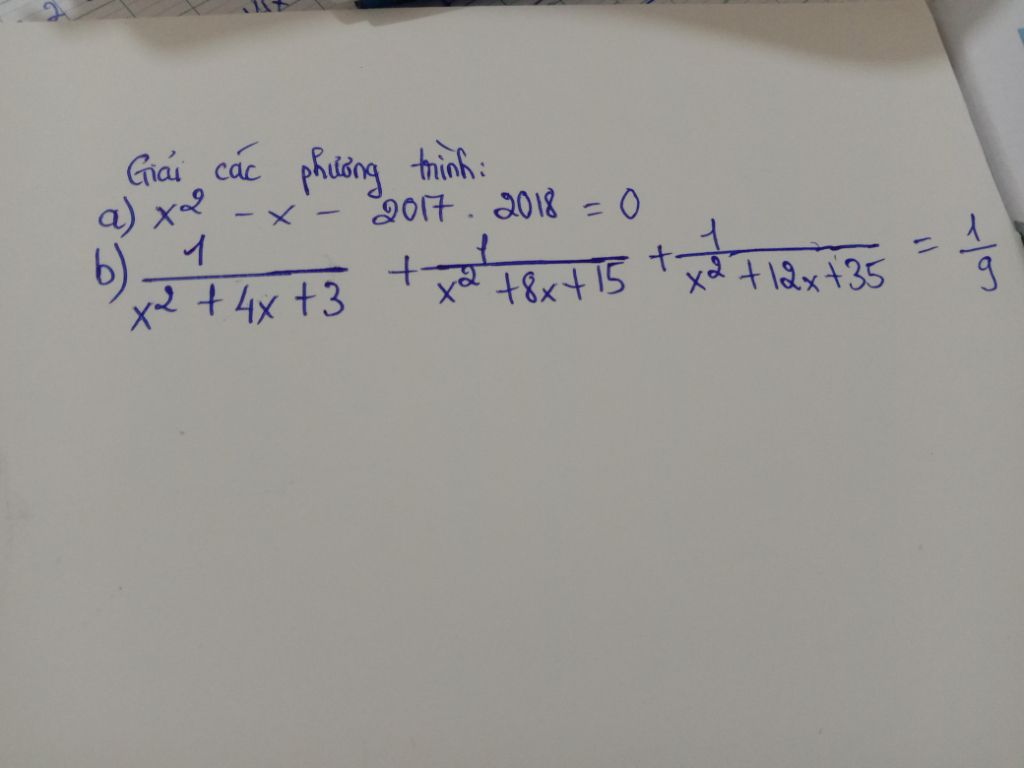 Giải các phương trình:
a) x² - x - 2017 . 2018 = 0
b) 1/(x² + 4x + 3) + 1/(x² + 8x + 15) + 1/(x² + 12x + 35) = 1/9